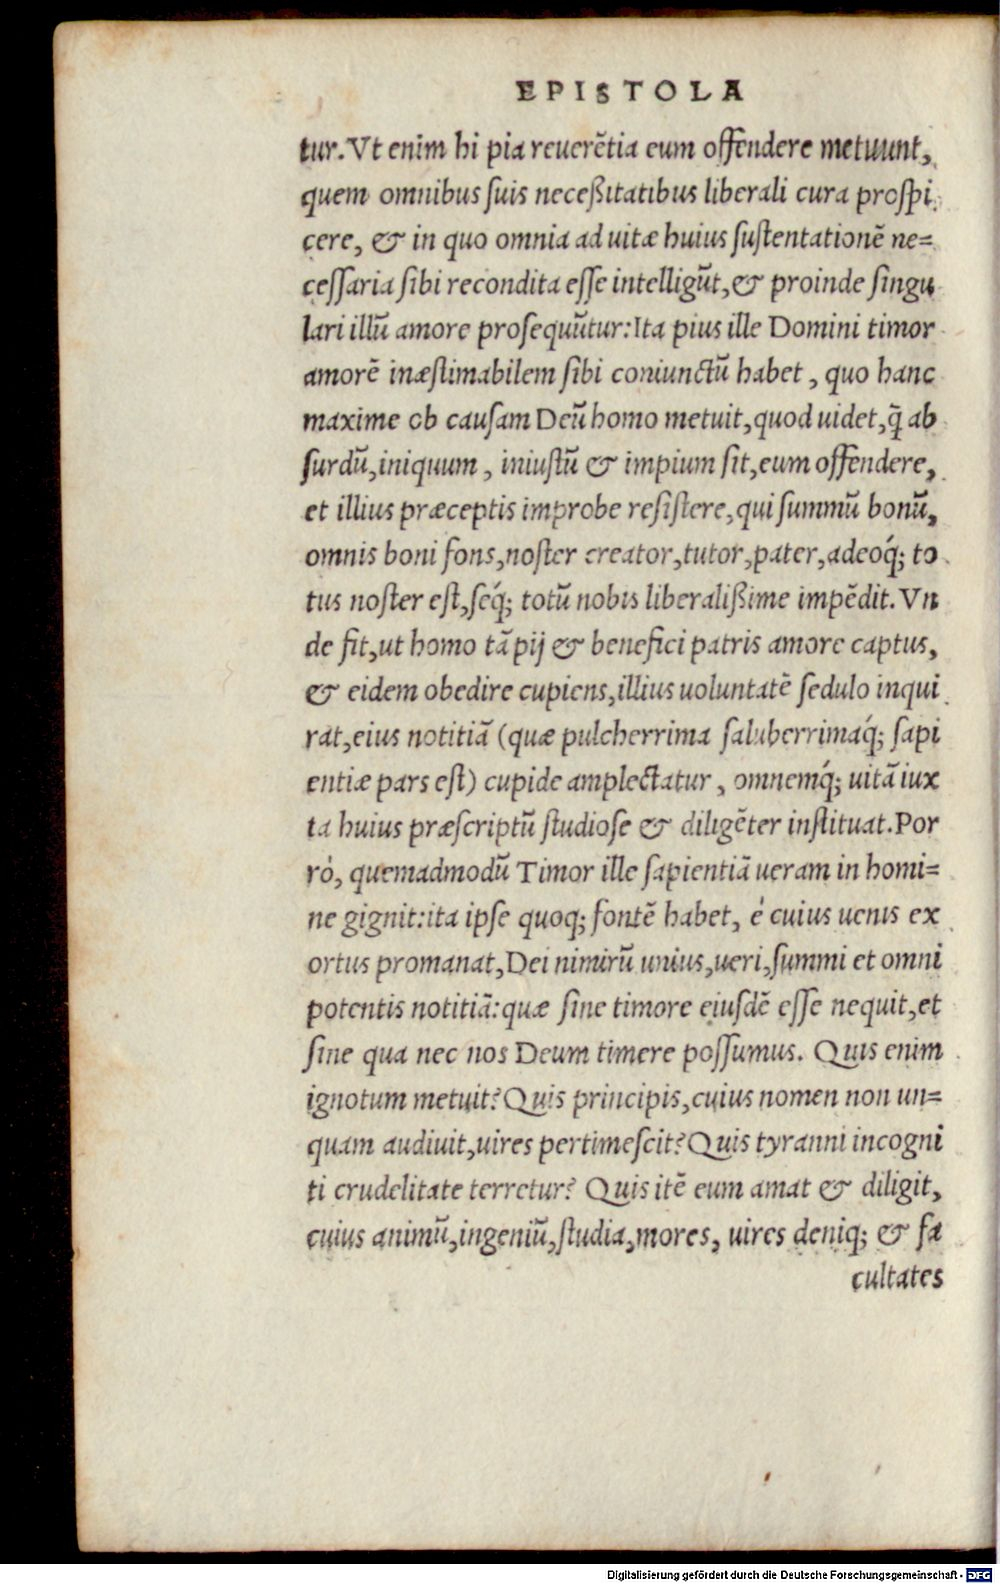 EPISTOLA
tur. Vt enim hi pia reuerẽtia eum offendere metuunt,
quem omnibus suis neceßitatibus liberali cura prospi
cere, & in quo omnia ad uitæ huius sustentationẽ ne=
cessaria sibi recondita esse intelligũt, & proinde singu
lari illũ amore prosequũtur: Ita pius ille Domini timor
amorẽ inæstimabilem sibi coniunctũ habet, quo hanc
maxime ob causam Deũ homo metuit, quod uidet, q̃ ab
surdũ, iniquum, iniustũ & impium sit, eum offendere,
et illius præceptis improbe resistere, qui summũ bonũ,
omnis boni fons, noster creator, tutor, pater, adeoq́; to
tus noster est, seq́; totũ nobis liberalißime impẽdit. Vn
de fit, ut homo tã pij & benefici patris amore captus,
& eidem obedire cupiens, illius uoluntatẽ sedulo inqui
rat, eius notitiã (quæ pulcherrima saluberrimaq́; sapi
entiæ pars est) cupide amplectatur, omnemq́; uitã iux
ta huius præscriptũ studiose & diligẽter instituat. Por
rò, quemadmodũ Timor ille sapientiã ueram in homi=
ne gignit: ita ipse quoq; fontẽ habet, è cuius uenis ex
ortus promanat, Dei nimirũ unius, ueri, summi et omni
potentis notitiã: quæ sine timore eiusdẽ esse nequit, et
sine qua nec nos Deum timere possumus. Quis enim
ignotum metuit? Quis principis, cuius nomen non un=
quam audiuit, uires pertimescit? Quis tyranni incogni
ti crudelitate terretur? Quis itẽ eum amat & diligit,
cuius animũ, ingeniũ, studia, mores, uires deniq; & fa
cultates
Digitalisierung gefördert durch die Deutsche Forschungsgemeinschaft - DFG